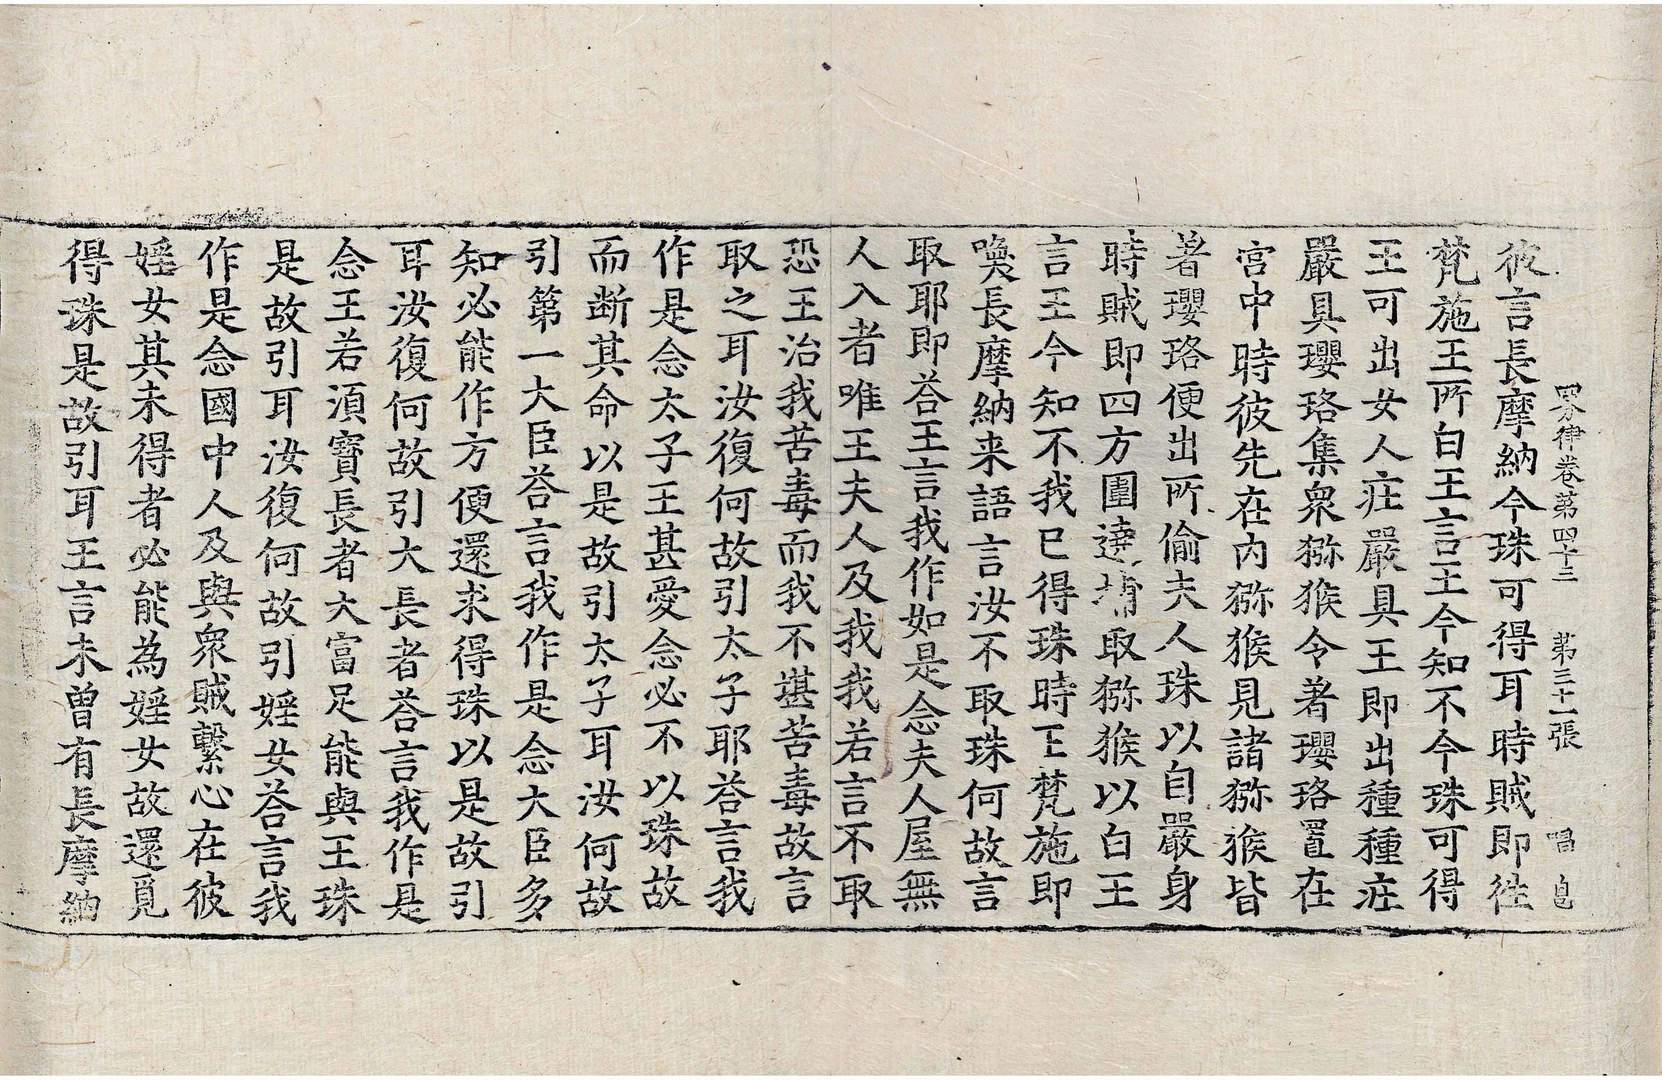 四分律卷第四十三 第三十一張 唱
彼言長摩納今珠可得耳時賊即徃
梵施王所白王言王今知不今珠可得
王可出女人庄嚴具王即出種種庄
嚴具瓔珞集衆猕猴令著瓔珞置在
宮中時彼先在內猕猴見諸猕猴皆
著瓔珞便出所偷夫人珠以自嚴身
時賊即四方圍遶捕取猕猴以白王
言王今知不我已得珠時王梵施即
喚長摩納来語言汝不取珠何故言
取耶即荅王言我作如是念夫人屋無
人入者唯王夫人及我我若言不取
恐王治我苦毒而我不堪苦毒故言
取之耳汝復何故引太子耶荅言我
作是念太子王甚愛念必不以珠故
而断其命以是故引太子耳汝何故
引第一大臣荅言我作是念大臣多
知必能作方便還求得珠以是故引
耳汝復何故引大長者荅言我作是
念王若須寶長者大富足能與王珠
是故引耳汝復何故引婬女荅言我
作是念國中人及與衆賊繫心在彼
婬女其未得者必能為婬女故還覓
得珠是故引耳王言未曾有長摩納